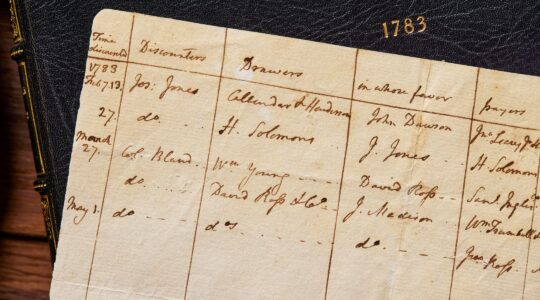 1783
Time discounted Discounters Drawers in whose favor payers
1783
Feb 13. Jos: Jones Callendar & Henderson John Dawson Jno
27. do. H. Solomons J. Jones H. Solomon
March 27. Col. Bland Wm Young David Ross Saml Inglis
do. David Ross & Co. J. Madison Wm Turnbull &
May 1. do do do Jno Ross